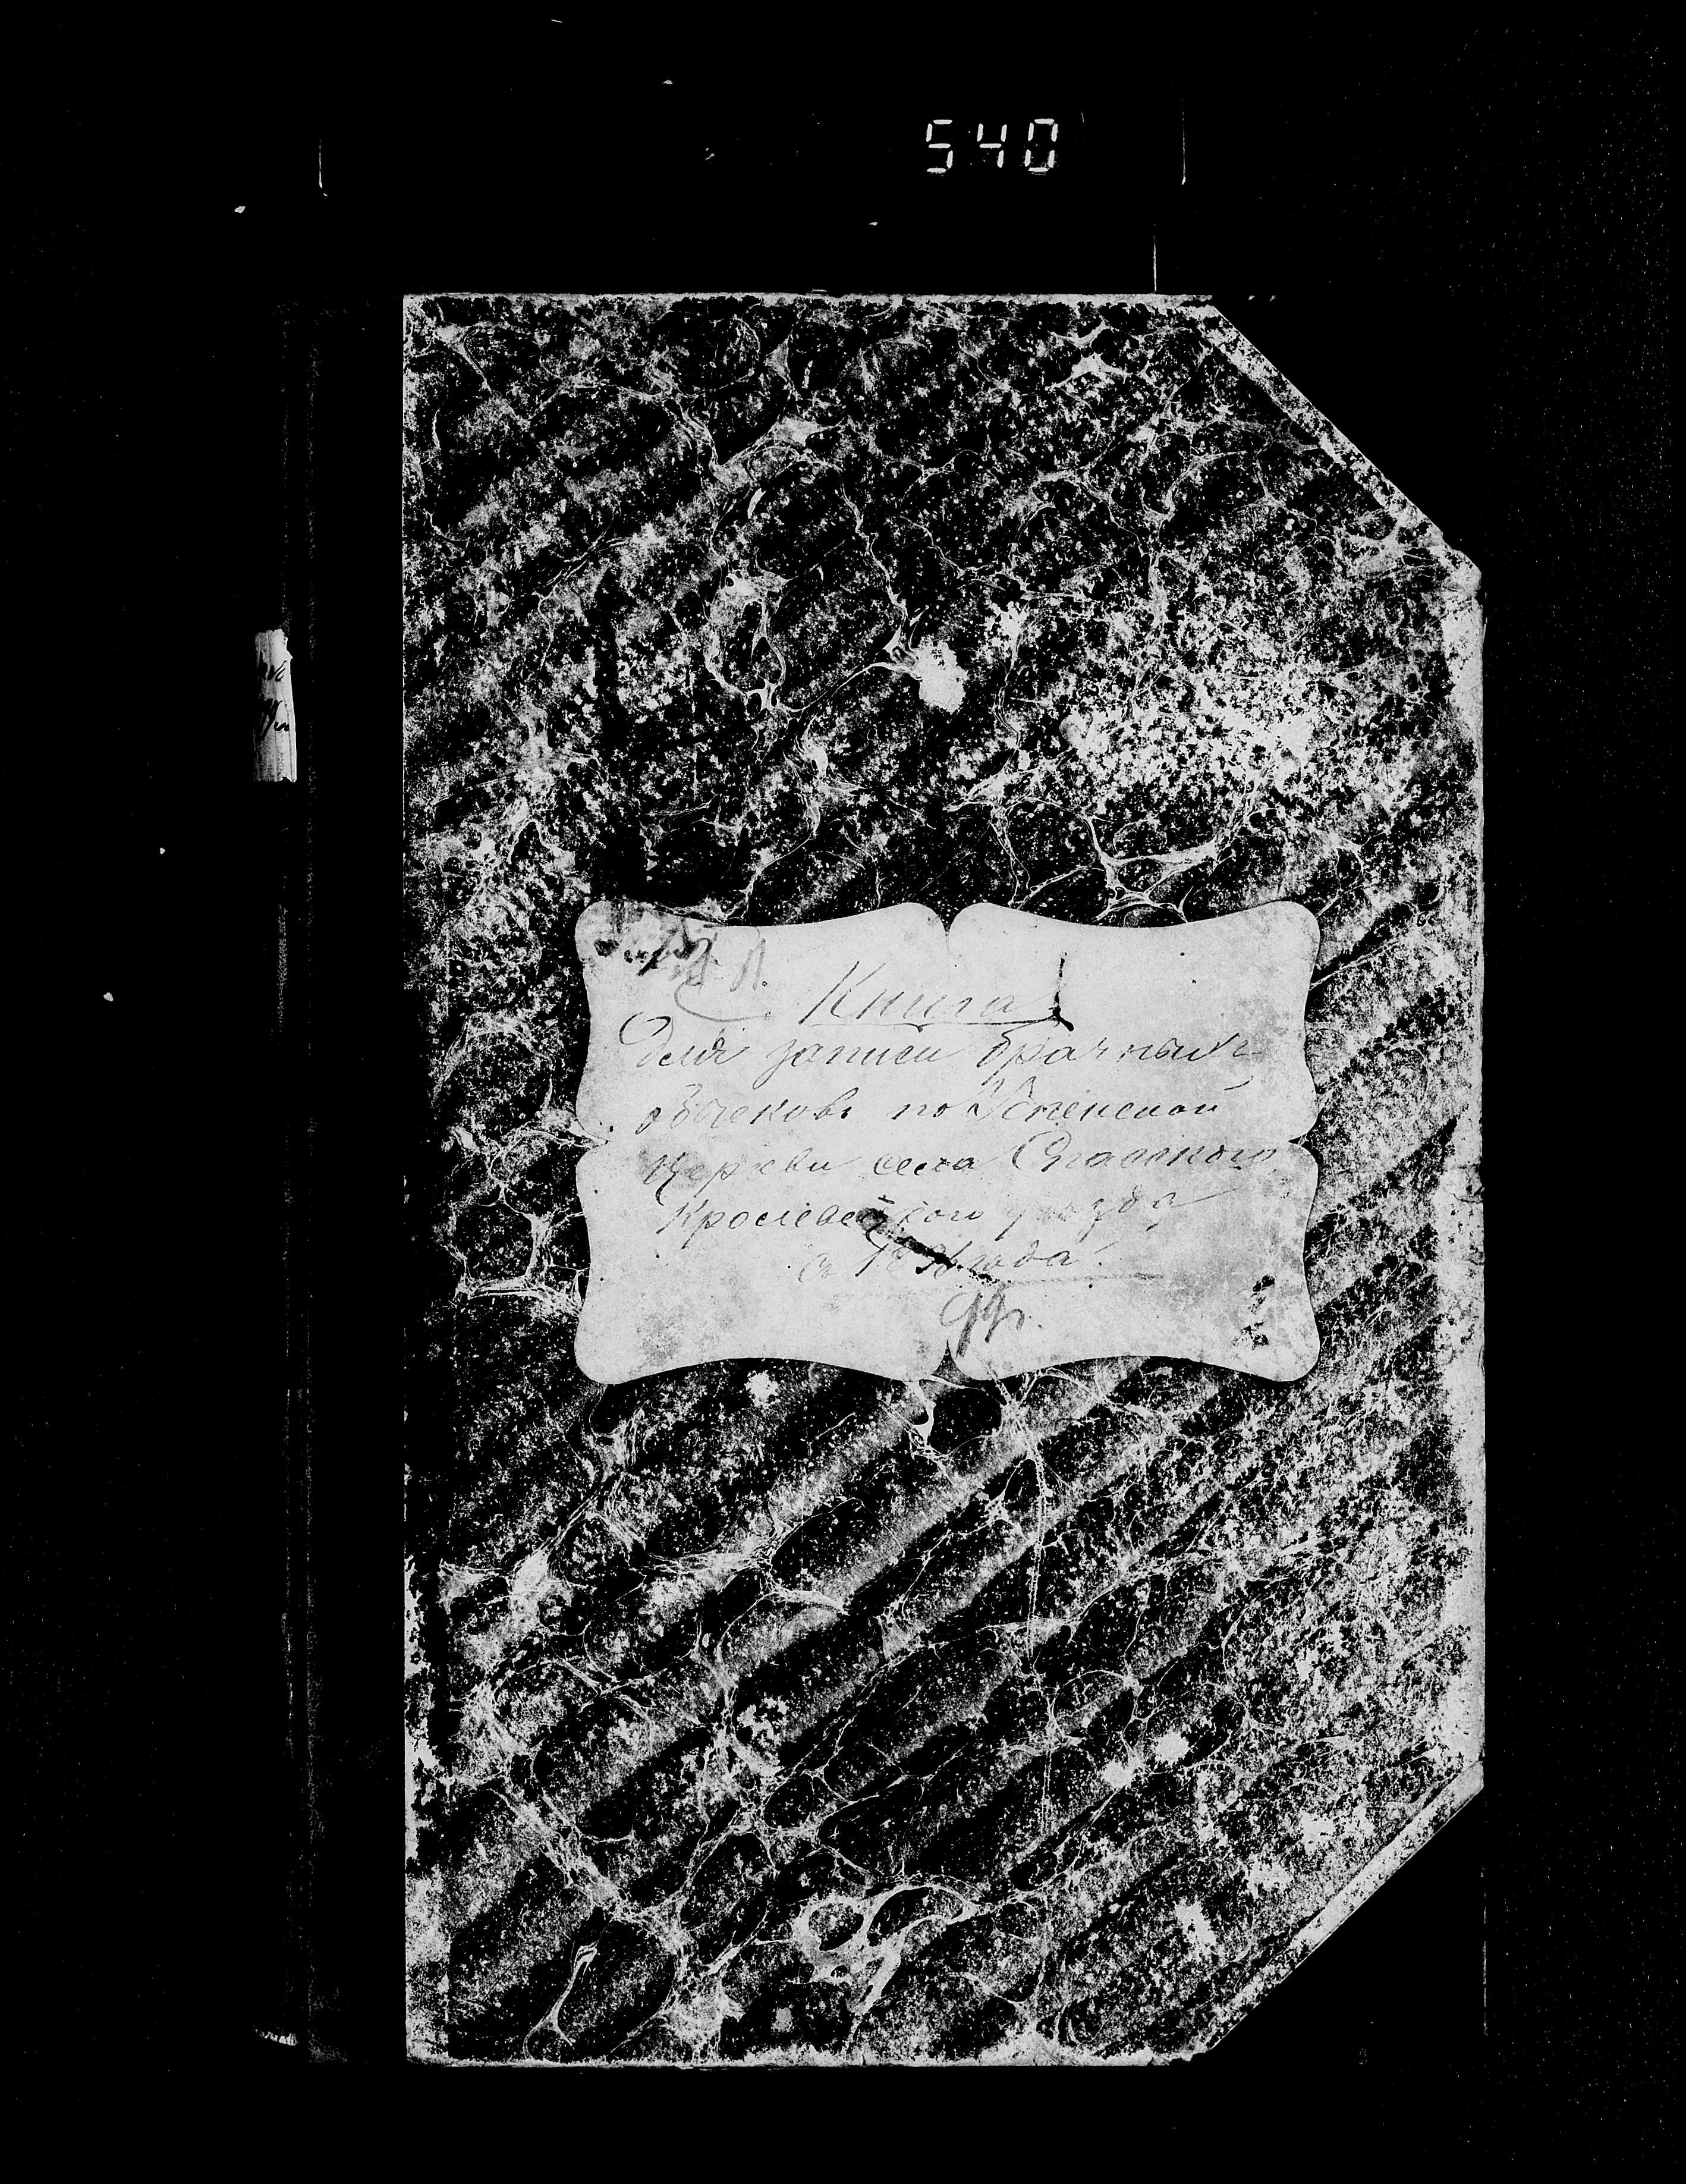 540
Книга
для записи брачныхъ
обысковъ по Успенской
Церкви села Спасскаго
Кролевецкаго уѣзда
съ года.